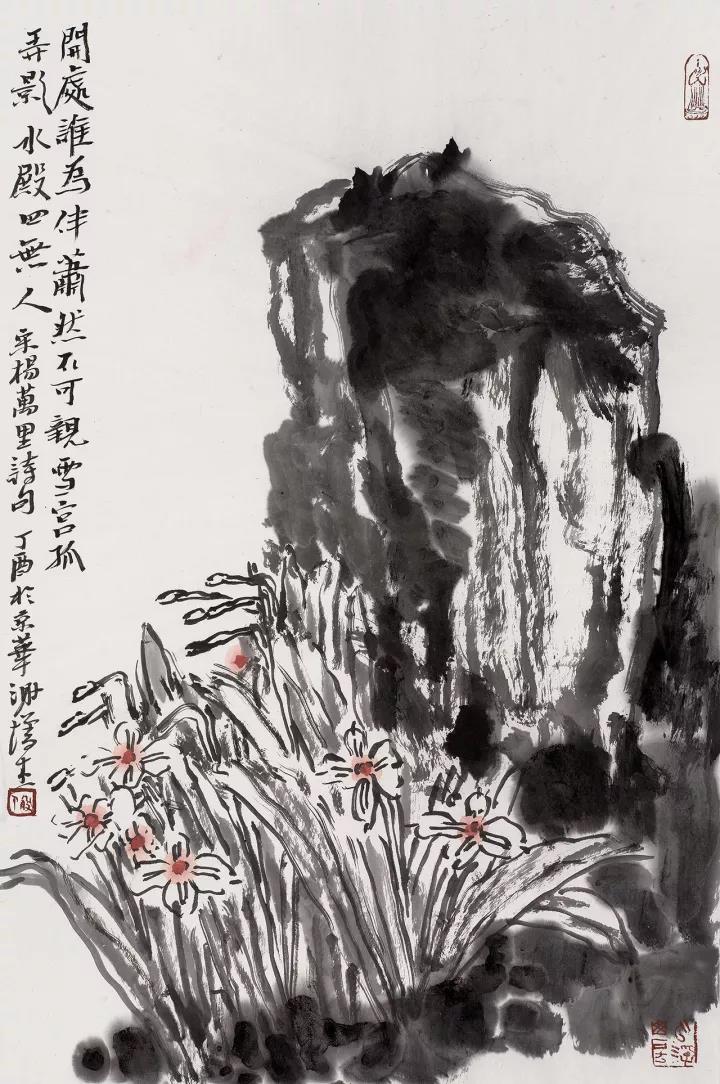 開處誰為伴蕭然不可親雪宮孤
弄影水殿四無人宋楊萬里詩句丁酉於京華